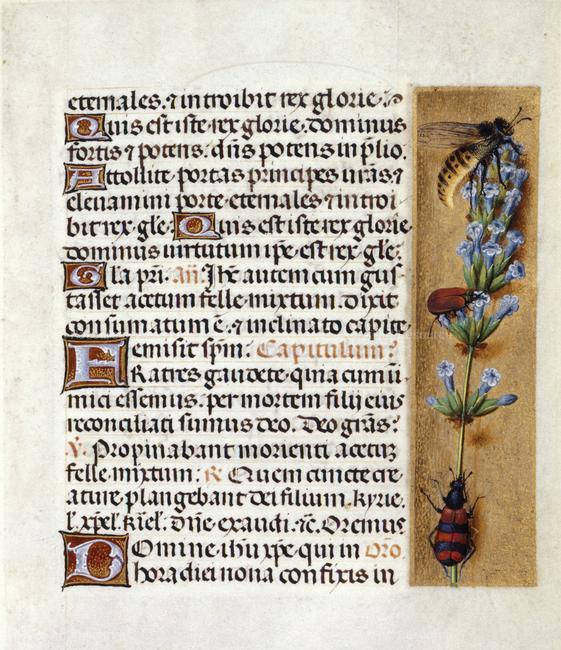 eternales. ⁊ introibit rex glorie.
Quis est iste rex glorie. dominus
fortis ⁊ potens. dn̄s potens in p̄lio.
Attollite portas principes vr̄as ⁊
eleuamini porte eternales ⁊ introi
bit rex gl̄e. Quis est iste rex glorie
dominus uirtutum ip̄e est rex gl̄e.
Gl̄a pr̄i. An̄. Ih̄c autem cum gus-
tasset acetum felle mixtum. dixit
consumatum ē. ⁊ inclinato capite
emisit sp̄m. Capitulum.
Fratres gaudete. quia cum ini
mici essemus. per mortem filij eius
reconciliati sumus deo. Deo grās.
℣. Propinabant morienti acetum
felle mixtum. ℟. Quem cuncte cre
ature plangebant dei filium. kyrie.
l. xp̄el. kīel. Dn̄e exaudi. ⁊c. Oremus
Domine ih̄u xp̄e qui in Oro.
hora diei nona confixis in